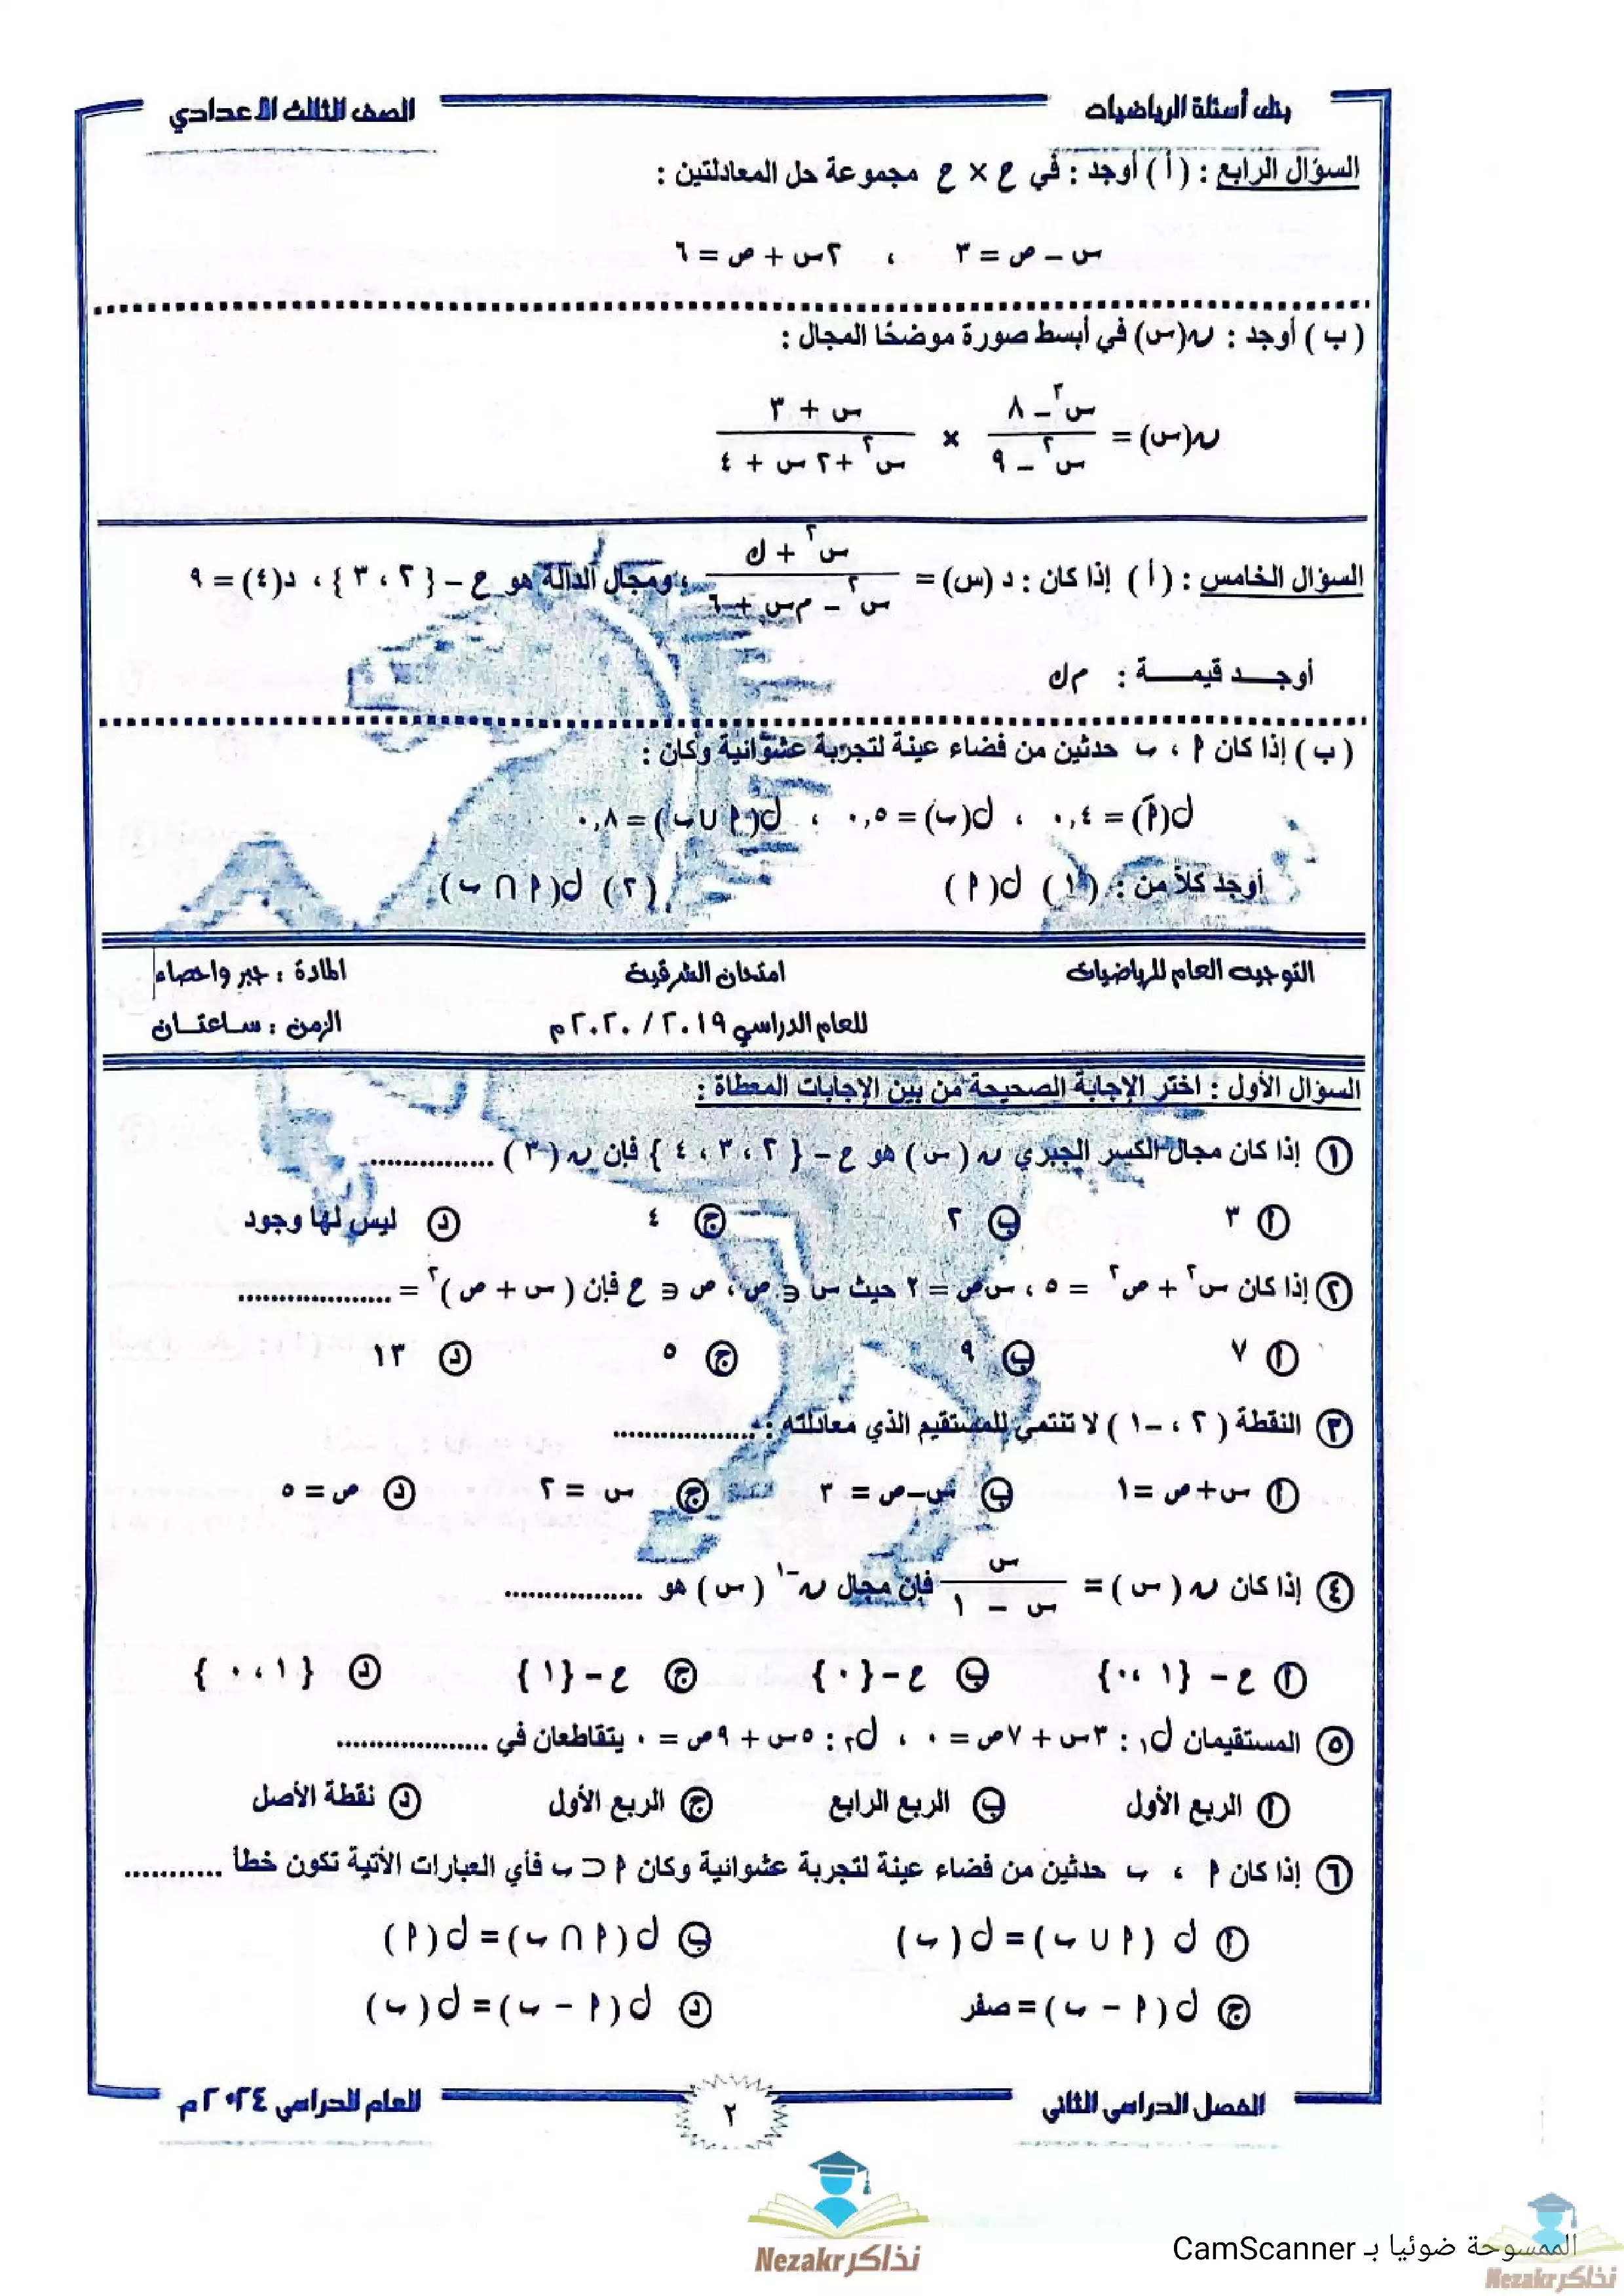 بنك أسئلة الرياضيات الصف الثالث الاعدادي
السؤال الرابع : ( أ ) أوجد : في ع × ع مجموعة حل المعادلتين :
س – ص = ٣ ، ٢س + ص = ٦
( ب ) أوجد : ن(س) في أبسط صورة موضحًا المجال :
ن(س) = (س³ – ٨)/(س² – ٩) × (س + ٣)/(س² + ٢س + ٤)
السؤال الخامس : ( أ ) إذا كان : د (س) = (س² + ك)/(س² – م س + ٦) ، ومجال الدالة هو ع – { ٢ ، ٣ } ، د(٤) = ٩
أوجـــد قيمـــــة : م ك
( ب ) إذا كان أ ، ب حدثين من فضاء عينة لتجربة عشوائية وكان :
ل(أَ) = ٠,٤ ، ل(ب) = ٠,٥ ، ل(أ ∪ ب) = ٠,٨
أوجد كلاً من : (١) ل( أ ) (٢) ل( أ ∩ ب )
التوجيه العام للرياضيات امتحان الشرقية المادة : جبر واحصاء
للعام الدراسي ٢٠١٩ / ٢٠٢٠م الزمن : ساعتــان
السؤال الأول : اختر الإجابة الصحيحة من بين الإجابات المعطاة :
١ إذا كان مجال الكسر الجبري ن ( س ) هو ع – { ٢ ، ٣ ، ٤ } فإن ن ( ٣ ) ...............
أ ٣ ب ٢ ج ٤ د ليس لها وجود
٢ إذا كان س² + ص² = ٥ ، س ص = ٢ حيث س ∈ ص ، ص ∈ ع فإن ( س + ص )² = ...................
أ ٧ ب ٩ ج ٥ د ١٣
٣ النقطة ( ٢ ، –١ ) لا تنتمي للمستقيم الذي معادلته : .................
أ س + ص = ١ ب س – ص = ٣ ج س = ٢ د ص = ٥
٤ إذا كان ن ( س ) = س/(س – ١) فإن مجال ن⁻¹ ( س ) هو .................
أ ع – {٠ ، ١} ب ع – {٠} ج ع – {١} د {٠ ، ١}
٥ المستقيمان ل₁ : ٣س + ٧ص = ٠ ، ل₂ : ٥س + ٩ص = ٠ يتقاطعان في ...................
أ الربع الأول ب الربع الرابع ج الربع الأول د نقطة الأصل
٦ إذا كان أ ، ب حدثين من فضاء عينة لتجربة عشوائية وكان أ ⊂ ب فأي العبارات الأتية تكون خطأ ............
أ ل ( أ ∪ ب ) = ل( ب ) ب ل( أ ∩ ب ) = ل( أ )
ج ل( أ – ب ) = صفر د ل( أ – ب ) = ل( ب )
الفصل الدراسي الثاني ٢ العام الدراسي ٢٠٢٤م
Nezakr نذاكر
الممسوحة ضوئيا بـ CamScanner
Nezakr نذاكر